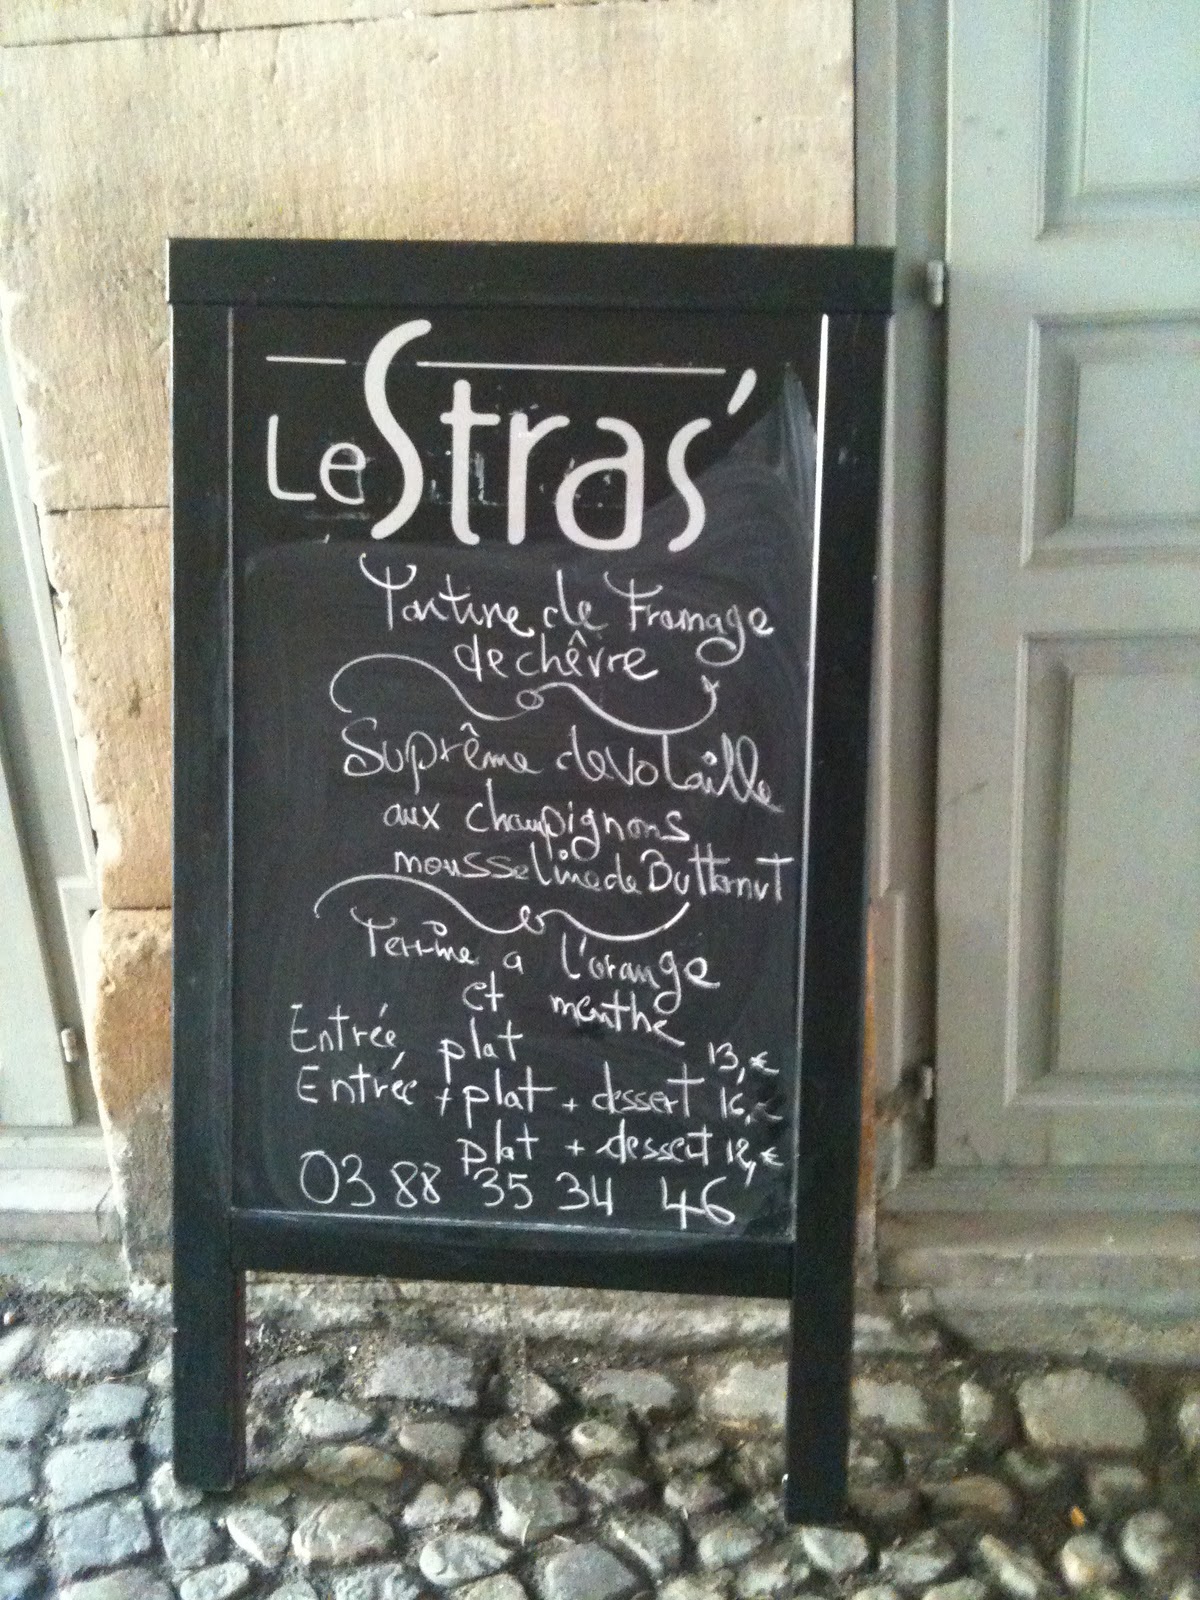 Le Stras'
Tartine de Fromage
de chêvre
Suprême de volaille
aux champignons
mousseline de Butternut
Terrine a l'orange
et menthe
Entrée plat 13,€
Entrée + plat + dessert 16,€
plat + dessert 12,€
03 88 35 34 46